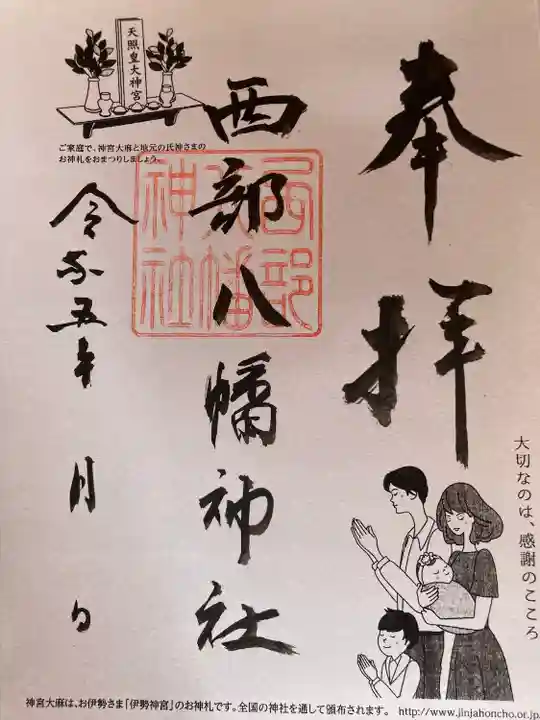 奉拝
大切なのは、感謝のこころ
西部八幡神社
西部八幡神社
天照皇大神宮
ご家庭で、神宮大麻と地元の氏神さまの
お神札をおまつりしましょう。
令和五年 月 日
神宮大麻は、お伊勢さま「伊勢神宮」のお神札です。全国の神社を通して頒布されます。 http://www.jinjahoncho.or.jp